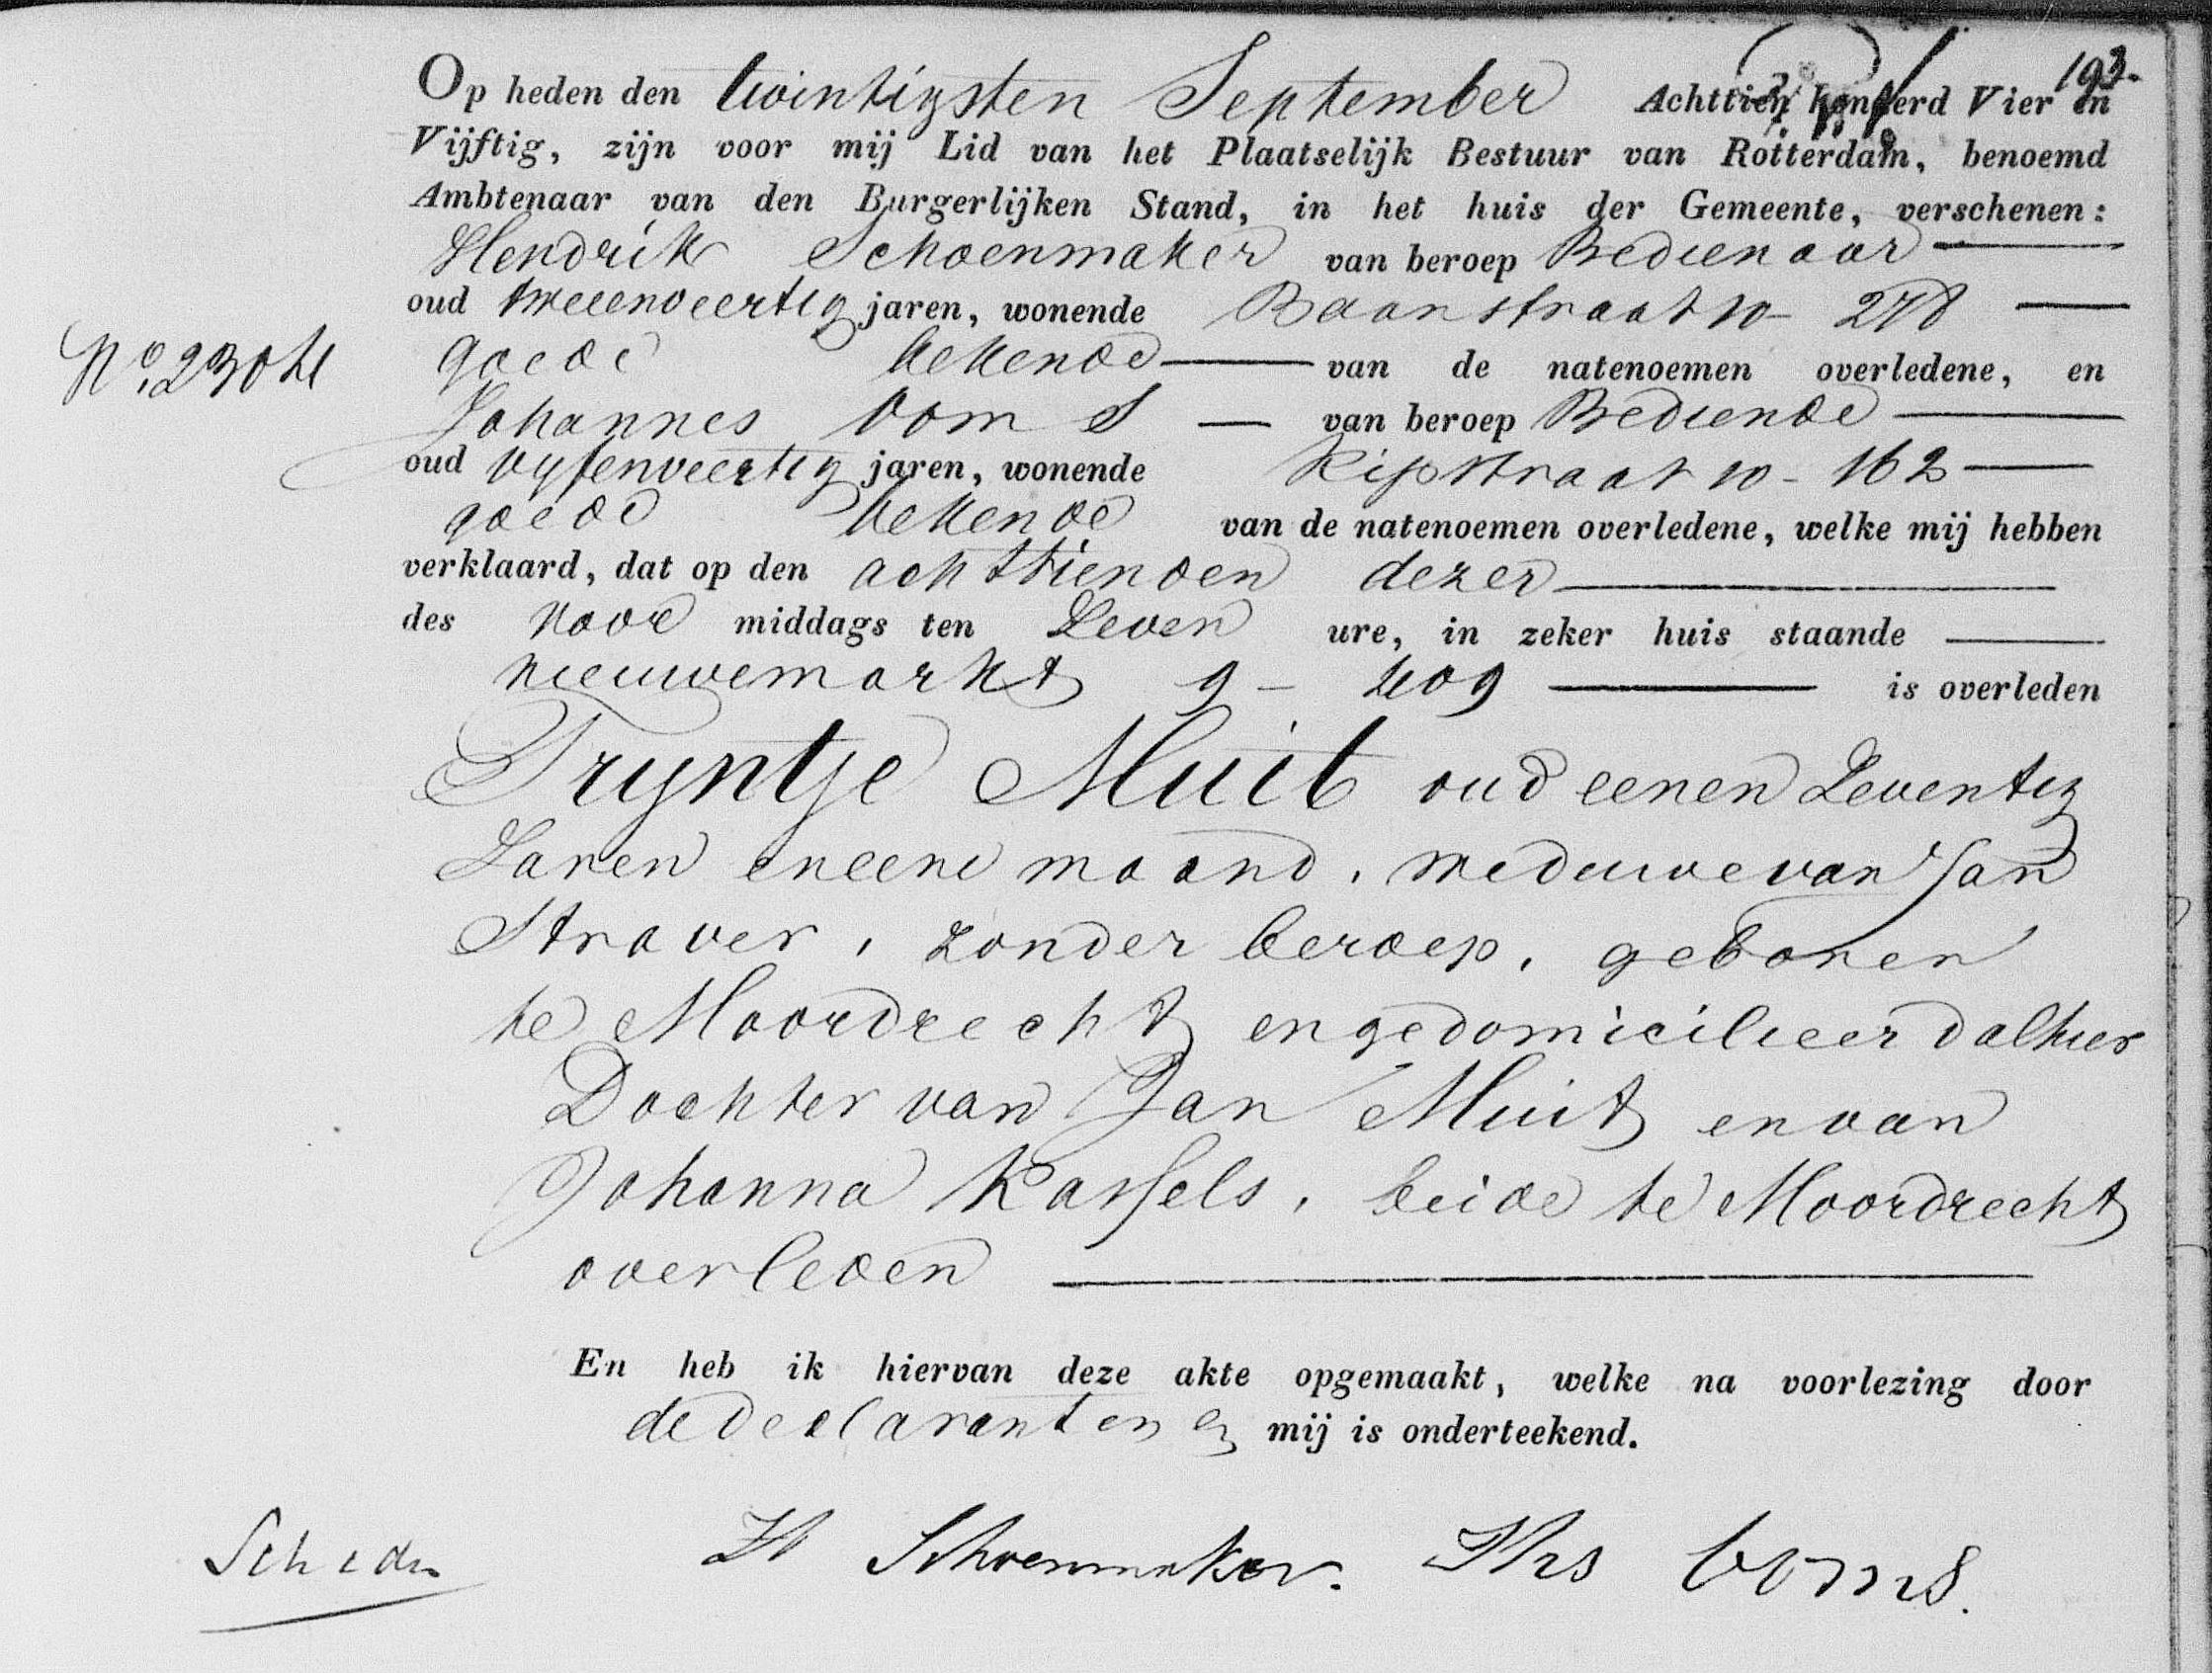 193.
Op heden den twintigsten September Achttien honderd Vier en
Vijftig, zijn voor mij Lid van het Plaatselijk Bestuur van Rotterdam, benoemd
Ambtenaar van den Burgerlijken Stand, in het huis der Gemeente, verschenen:
Hendrik Schoenmaker van beroep Bedienaar
oud tweeenveertig jaren, wonende Baanstraat 10- 278
No. 2304
goede bekende van de natenoemen overledene, en
Johannes Vom S van beroep Bediende
oud vyfenveertig jaren, wonende Kipstraat 10- 162
goede bekende van de natenoemen overledene, welke mij hebben
verklaard, dat op den achttienden dezer
des voor middags ten Zeven ure, in zeker huis staande
nieuwemarkt 9- 409 is overleden
Tryntje Muit oud eenen Zeventig
Jaren en eene maand, weduwe van Jan
Straver, zonder beroep, geboren
te Moordrecht en gedomicilieerd alhier
Dochter van Jan Muit en van
Johanna Kassels, beide te Moordrecht
overleden
En heb ik hiervan deze akte opgemaakt, welke na voorlezing door
de declaranten en mij is onderteekend.
H Schoenmaker. Jhs Voms.